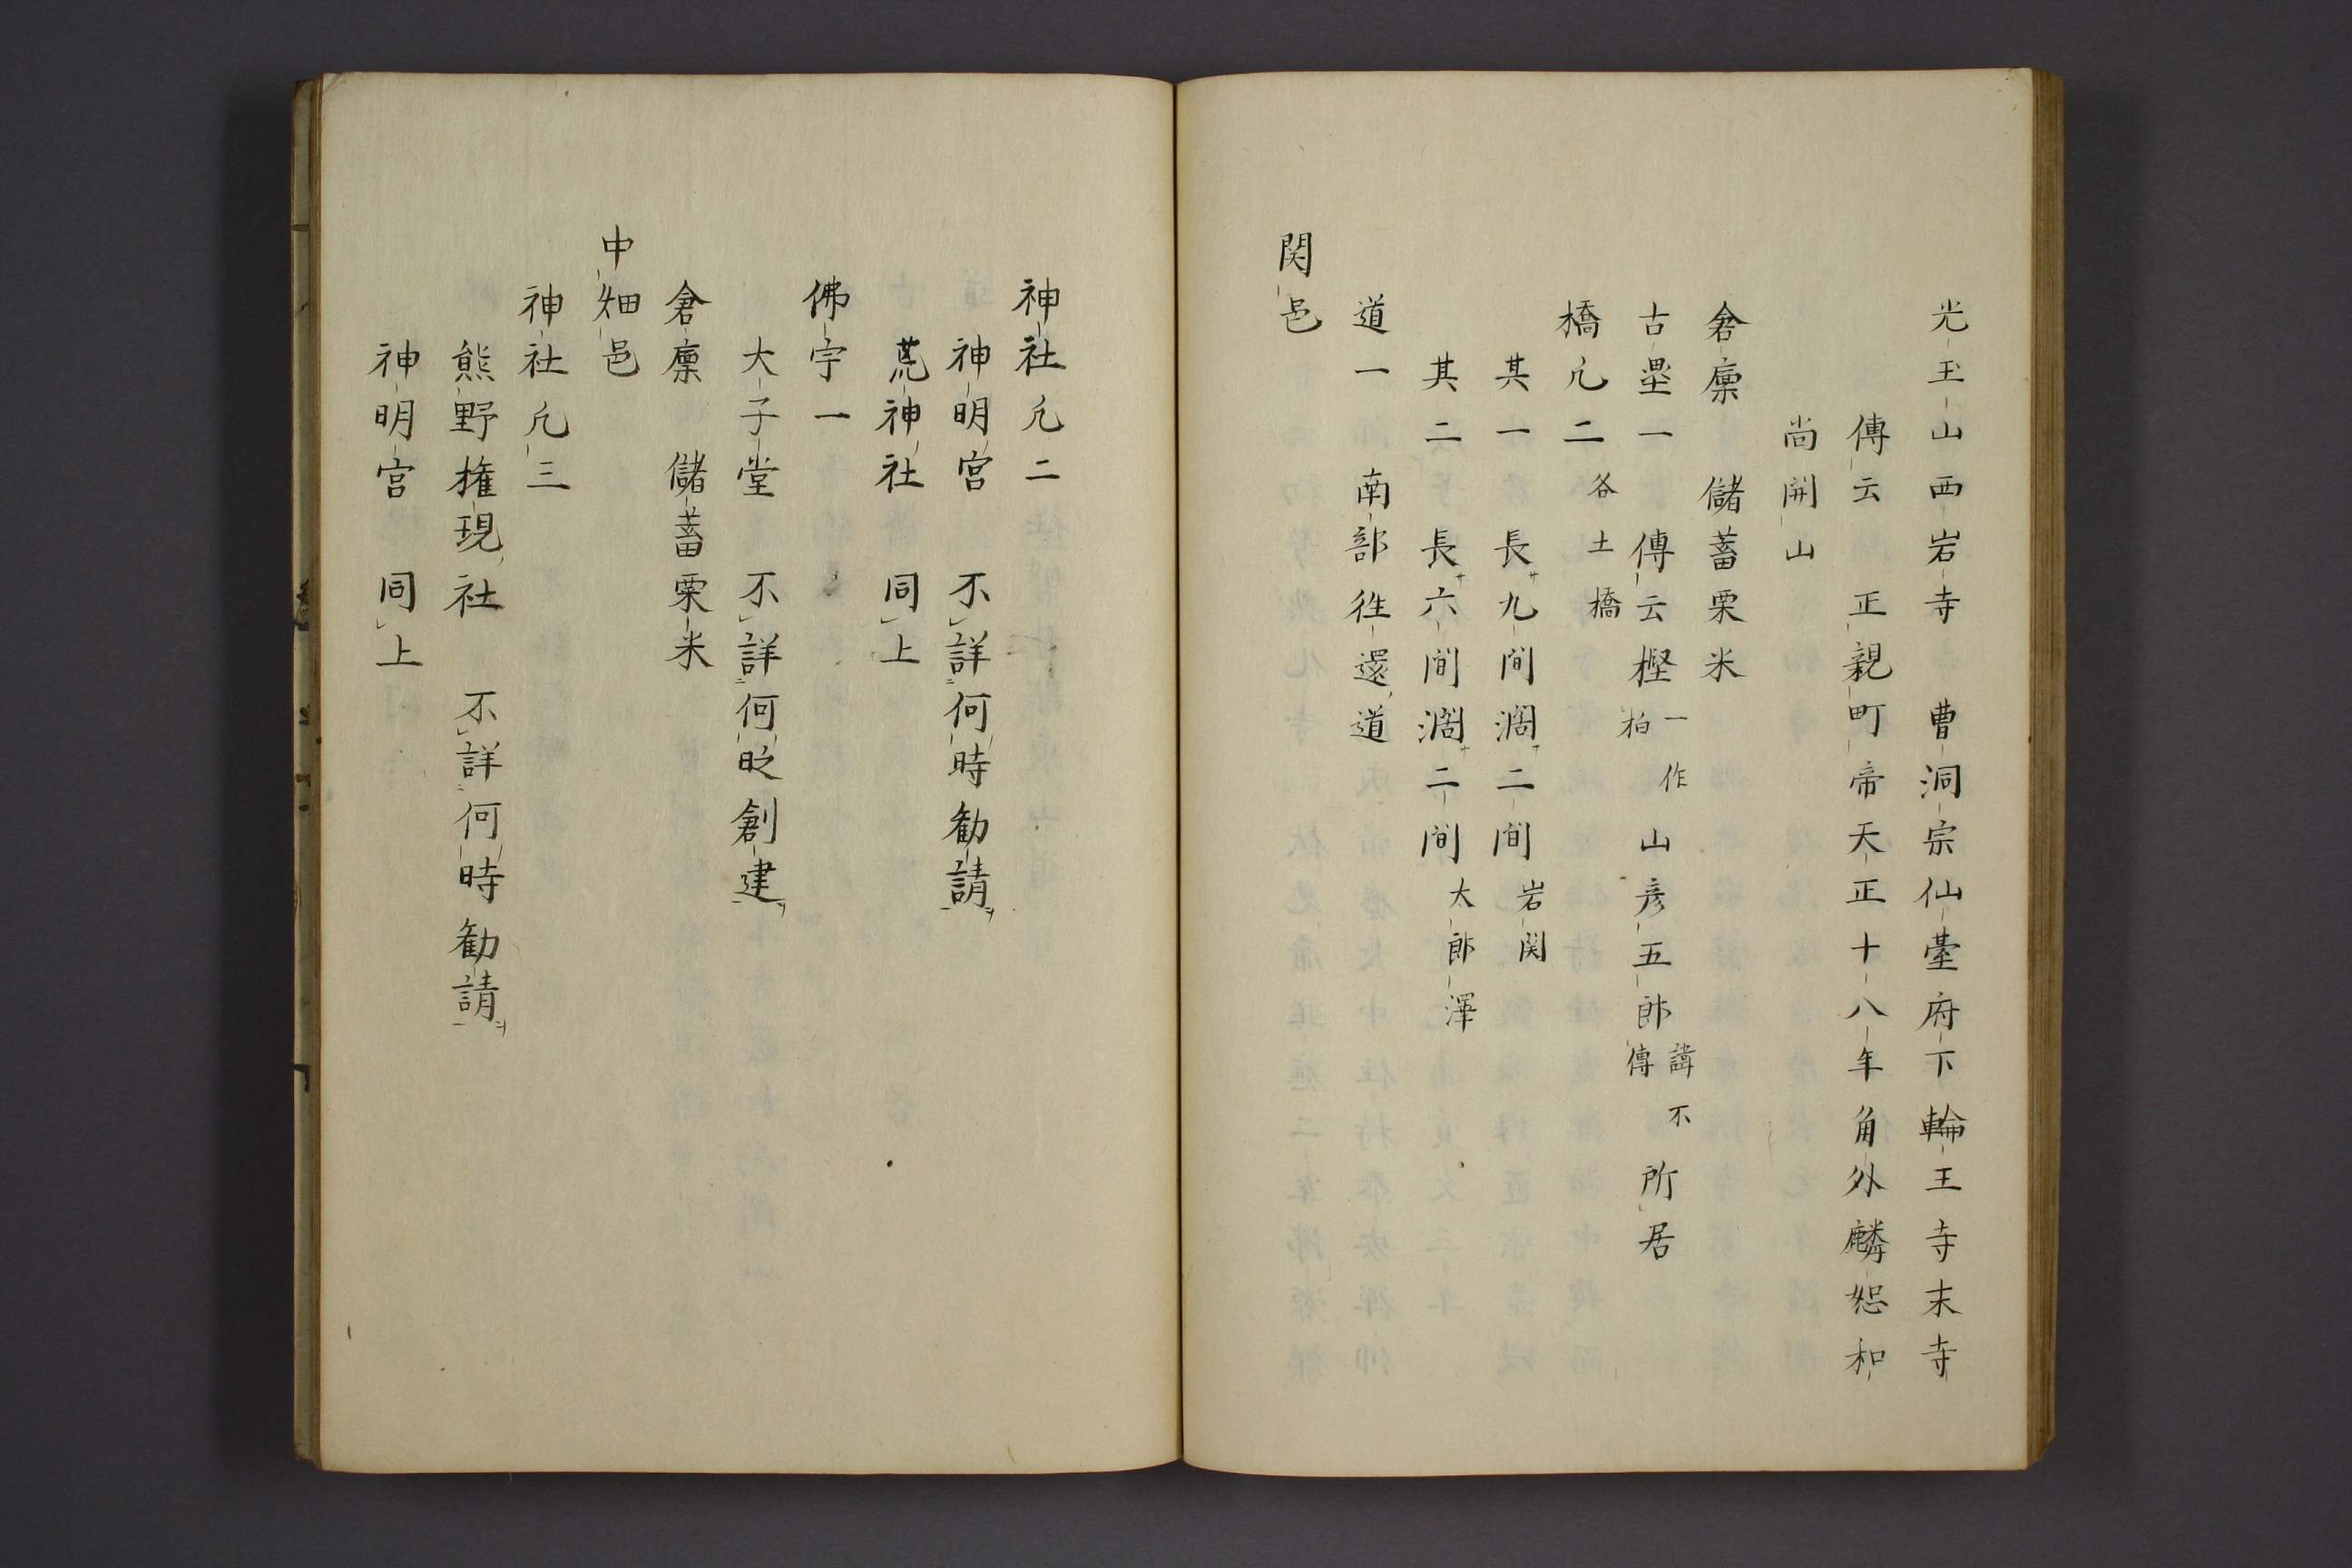 光玉山西岩寺 曹洞宗仙臺府下輪王寺末寺
傳云 正親町帝天正十八年角外麟恕和
尚開山
倉廩 儲蓄粟米
古壘一 傳云樫一作柏山彦五郎諱不傳所居
橋凢二 各土橋
其一 長九間濶二間 岩関
其二 長六間濶二間 太郎澤
道一 南部徃還道
関邑
神社凢二
神明宮 不詳何時勧請
荒神社 同上
佛宇一
大子堂 不詳何旹創建
倉廩 儲蓄粟米
中畑邑
神社凢三
熊野権現社 不詳何時勧請
神明宮 同上